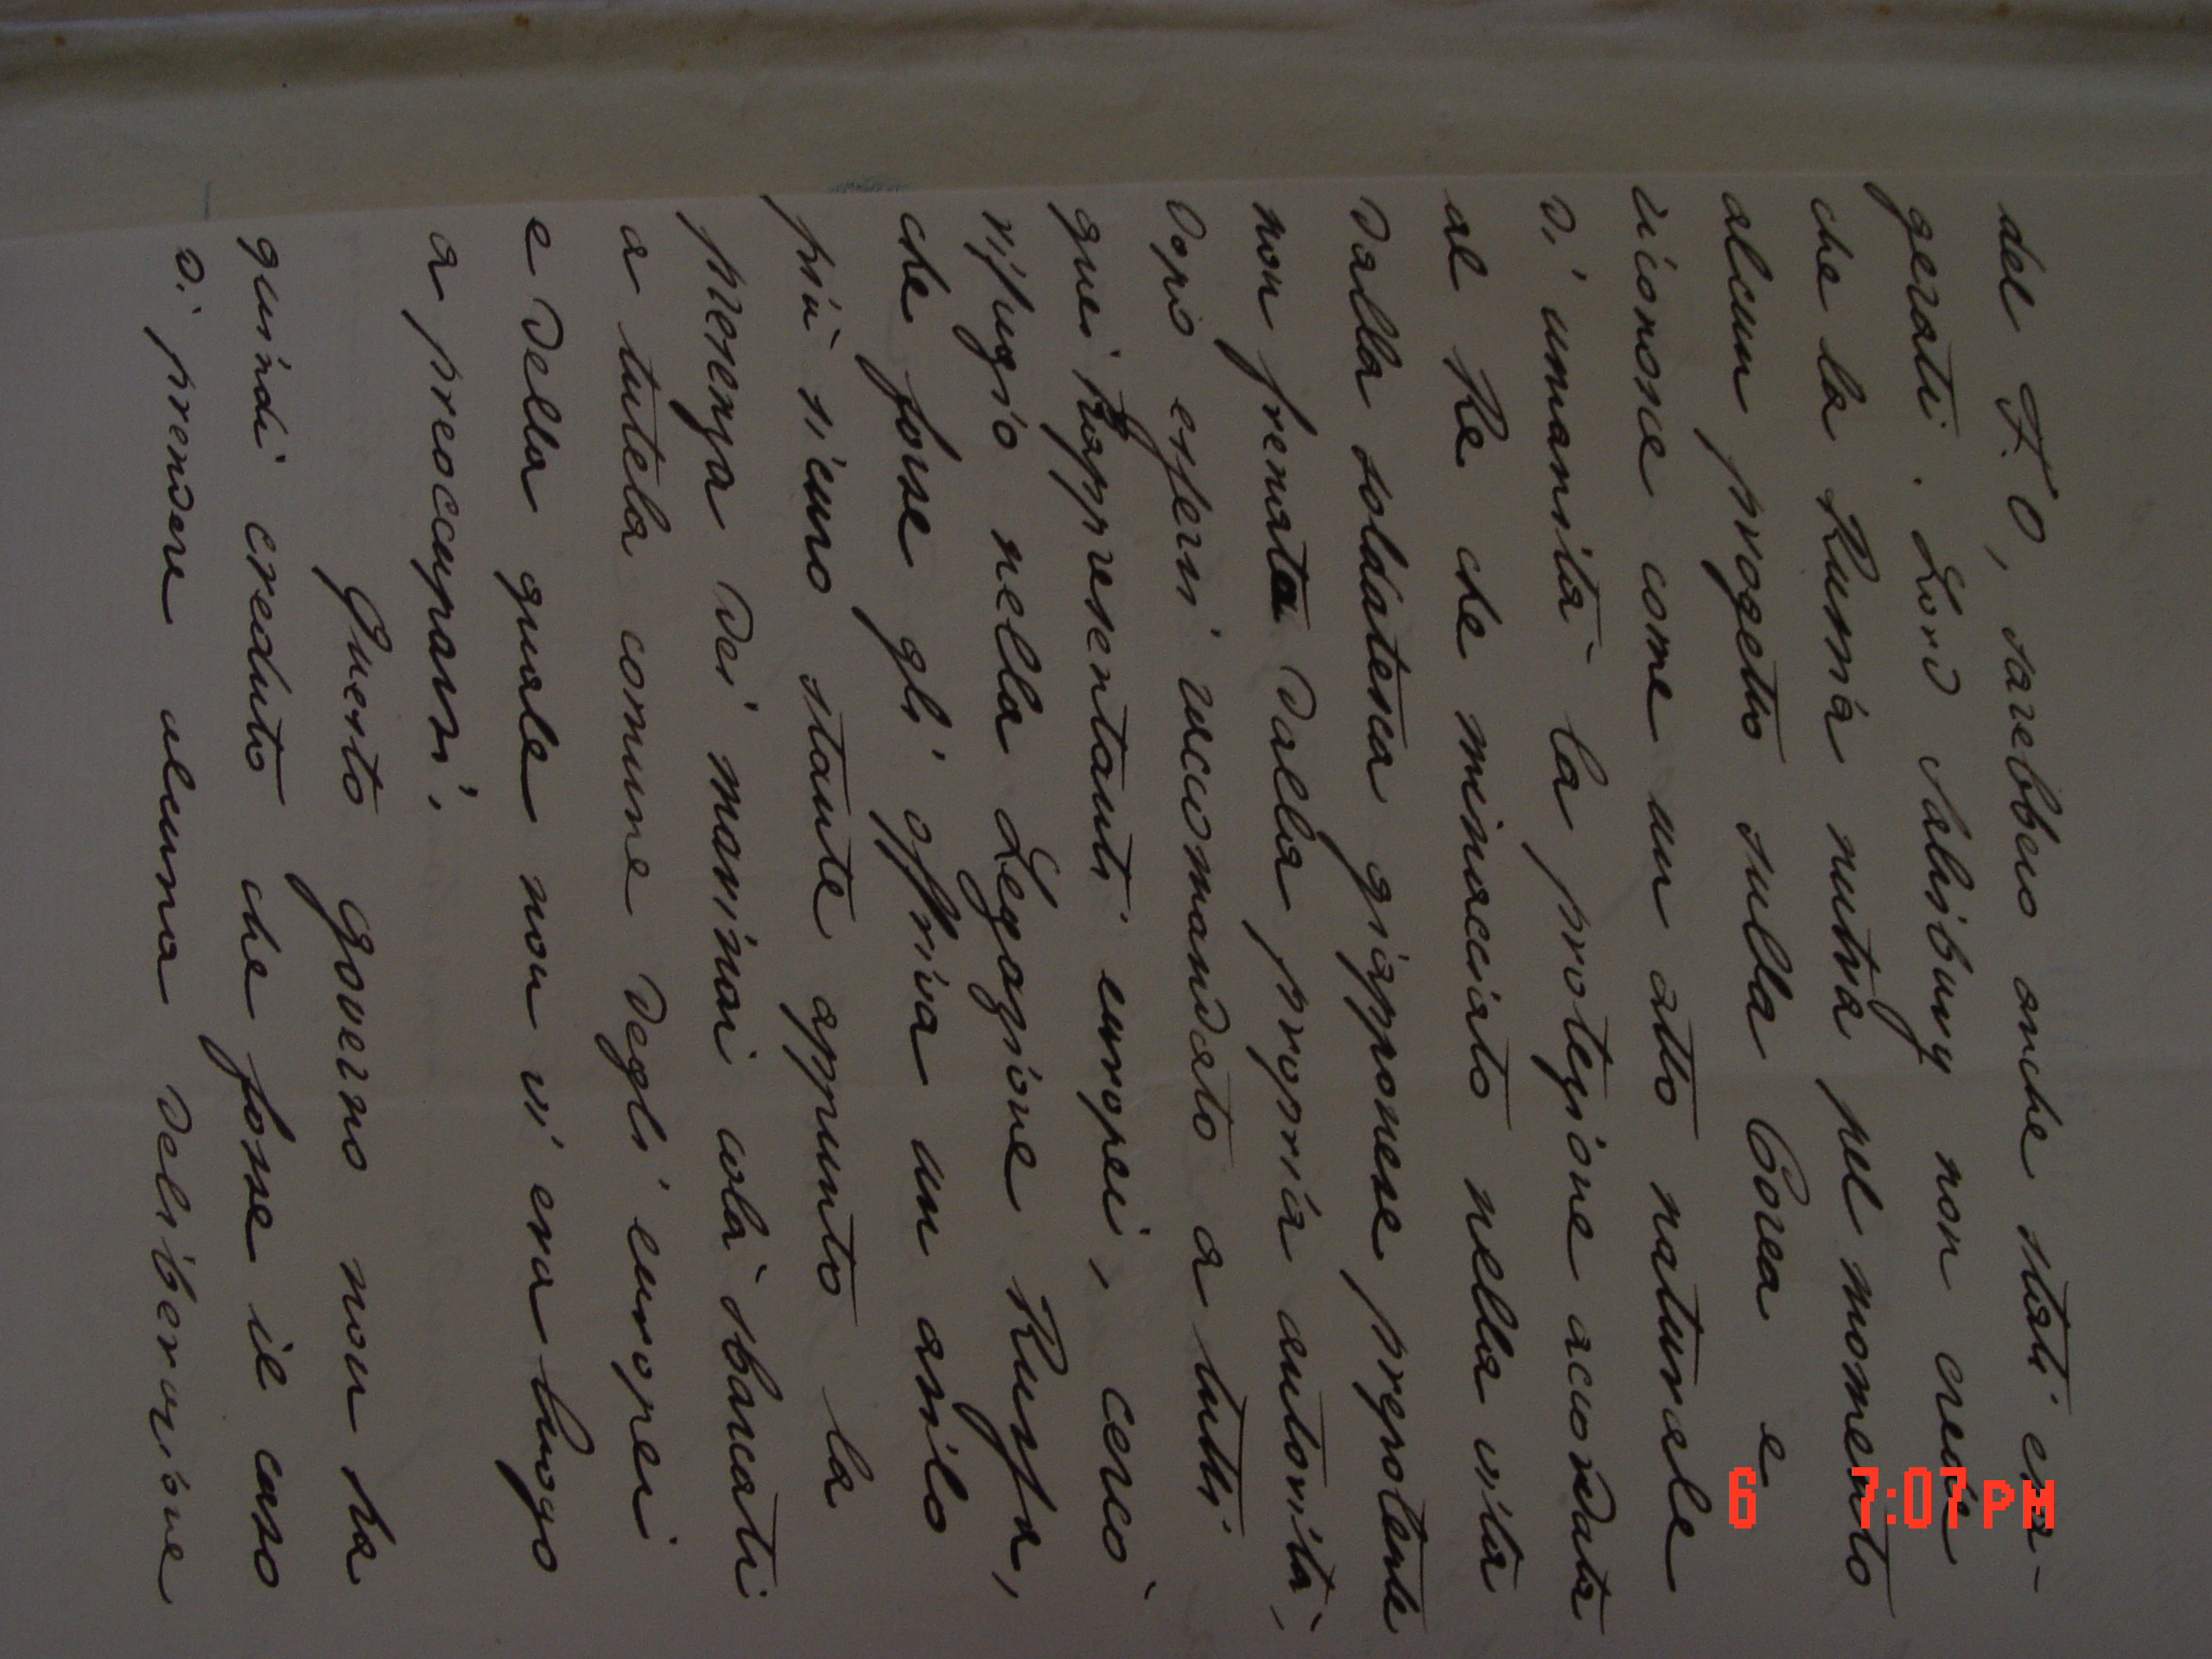 del F. O, sarebbero anche stati esa-
gerati. Lord Salisbury non crede
che la Russia nutra pel momento
alcun progetto sulla Corea e
riconosce come un atto naturale
di umanità la protezione accordata
al Re che minacciato nella vita
dalla soldatesca giapponese prepotente
non frenata dalla propria autorità,
dopo essersi raccomandato a tutti
quei Rappresentanti europei, cercò
rifugio nella Legazione Russa,
che forse gli offriva un asilo
più sicuro stante appunto la
presenza dei marinai colà sbarcati
a tutela comune degli europei
e della quale non vi era luogo
a preoccuparsi.
Questo Governo non ha
quindi creduto che fosse il caso
di prendere alcuna deliberazione
6 7:07PM